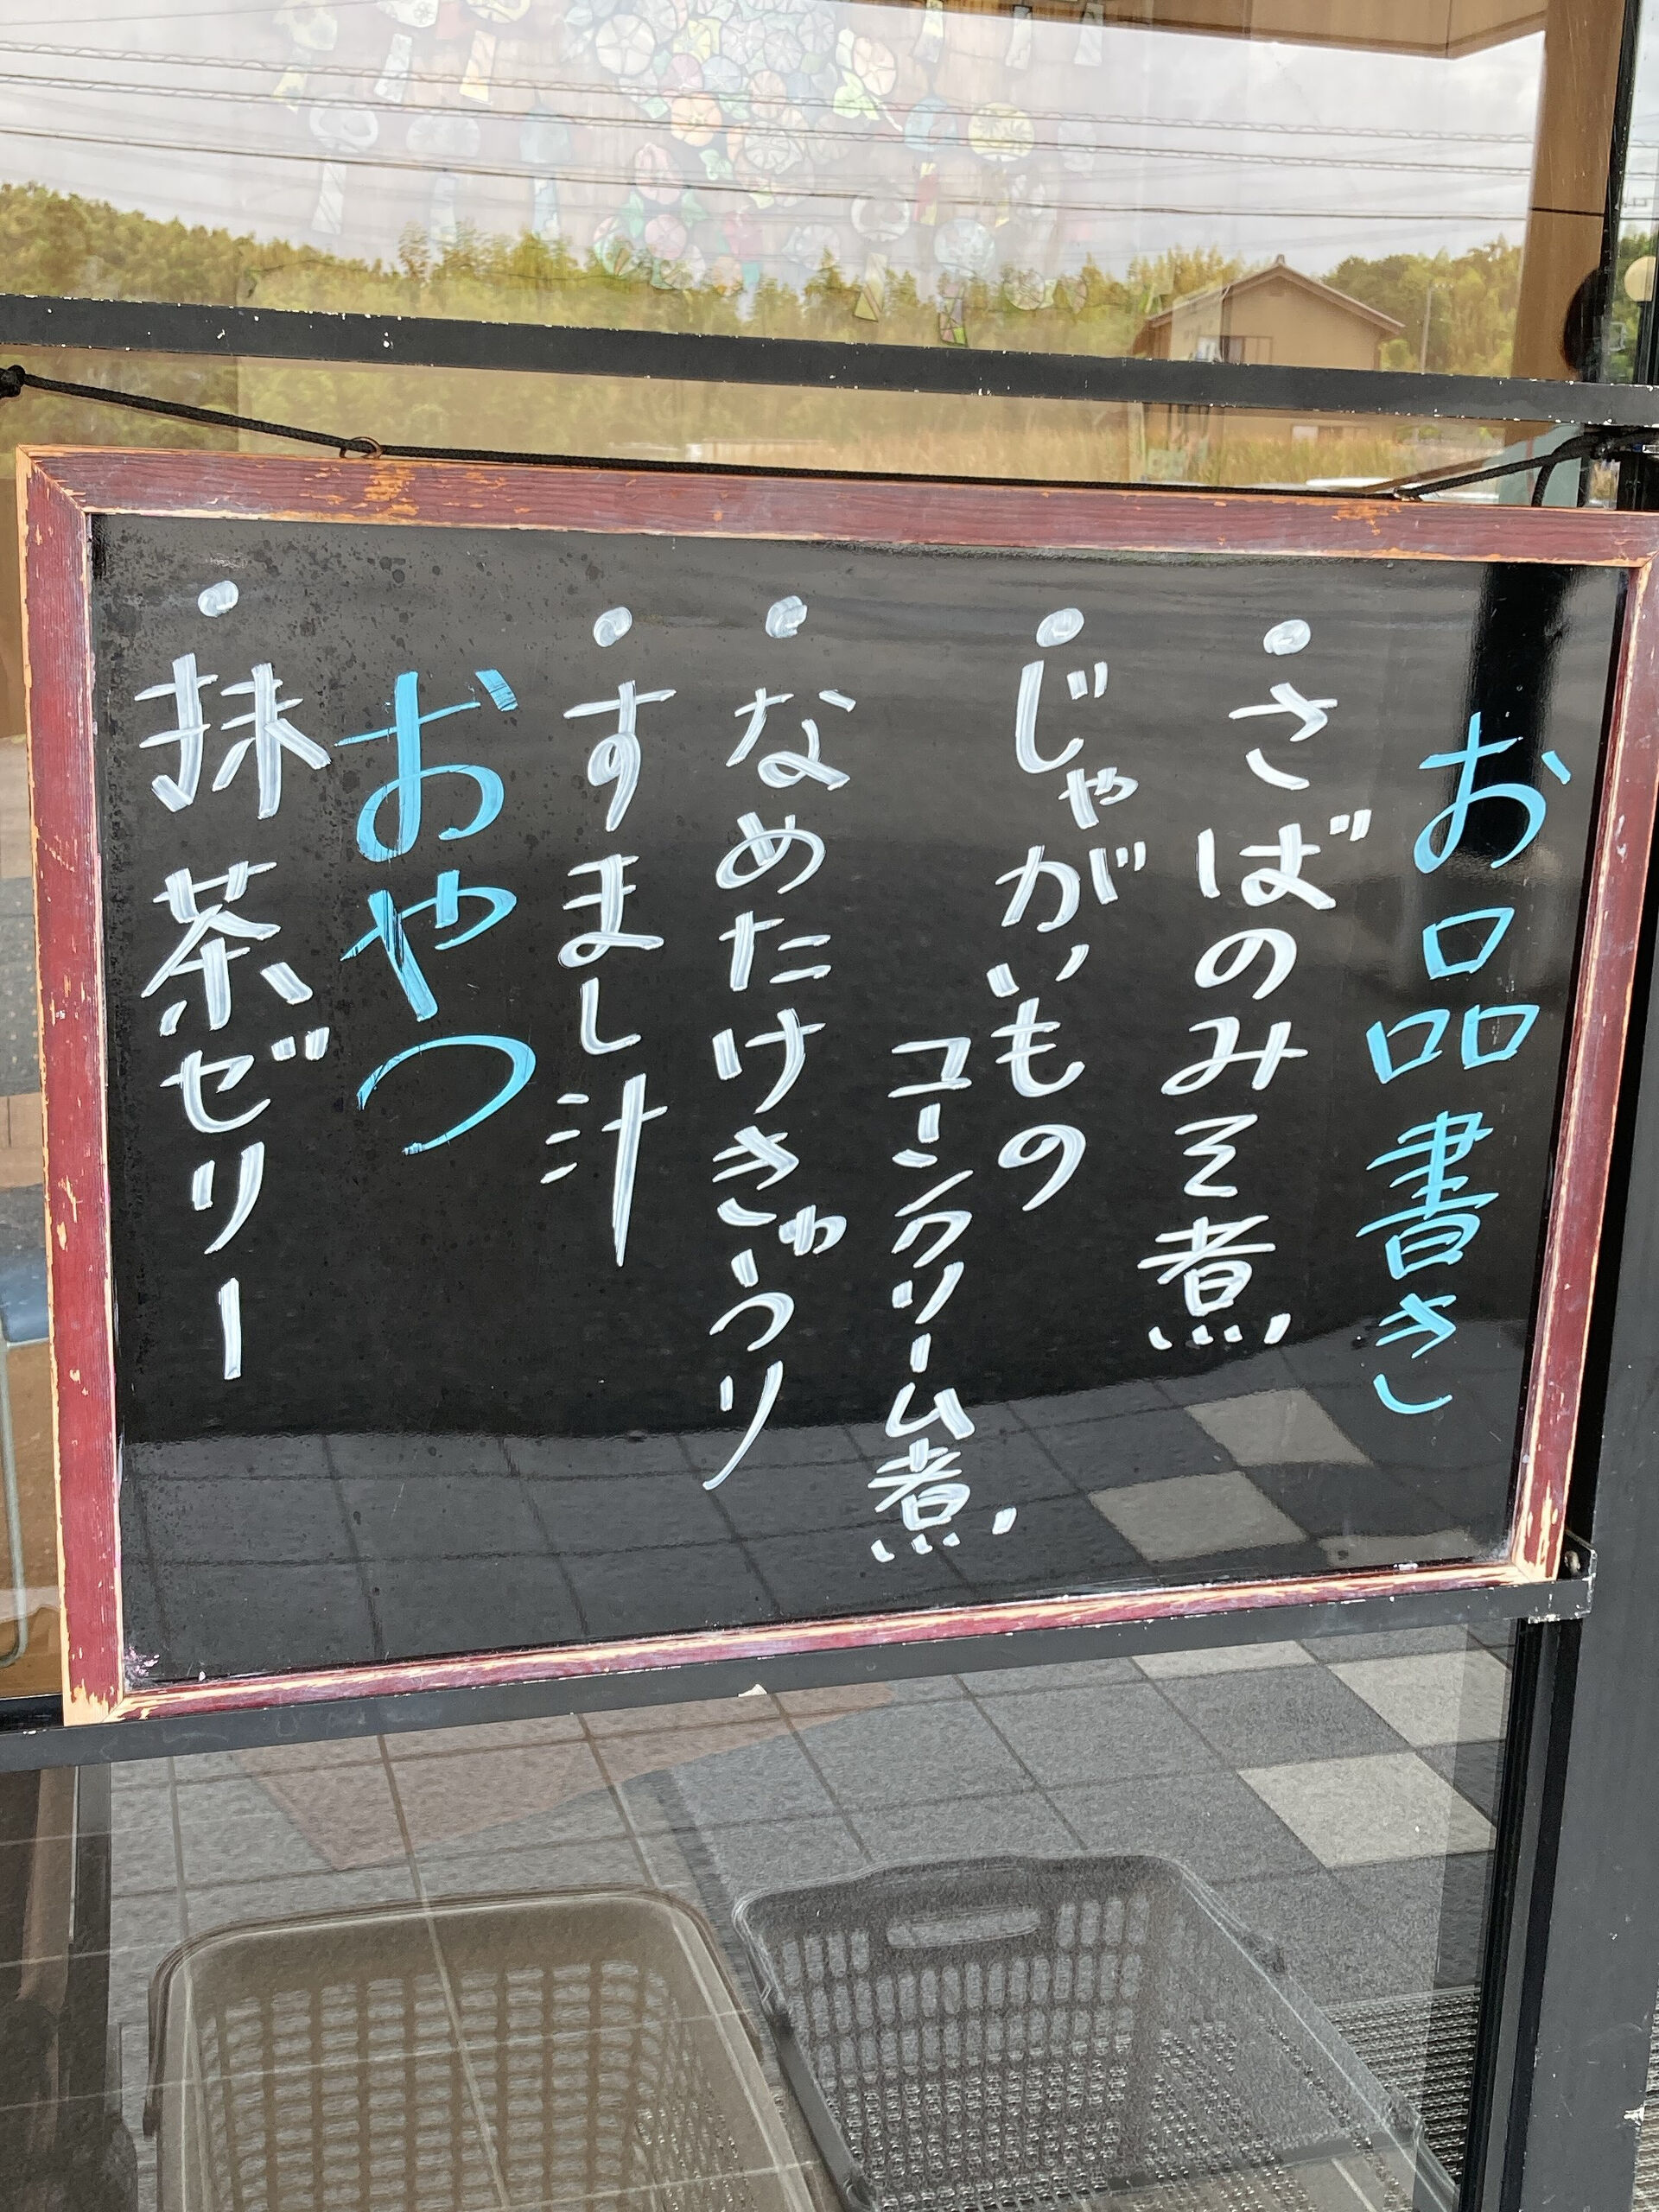 お品書き
・さばのみそ煮
・じゃがいもの
コーンクリーム煮
・なめたけきゅうり
・すまし汁
おやつ
・抹茶ゼリー